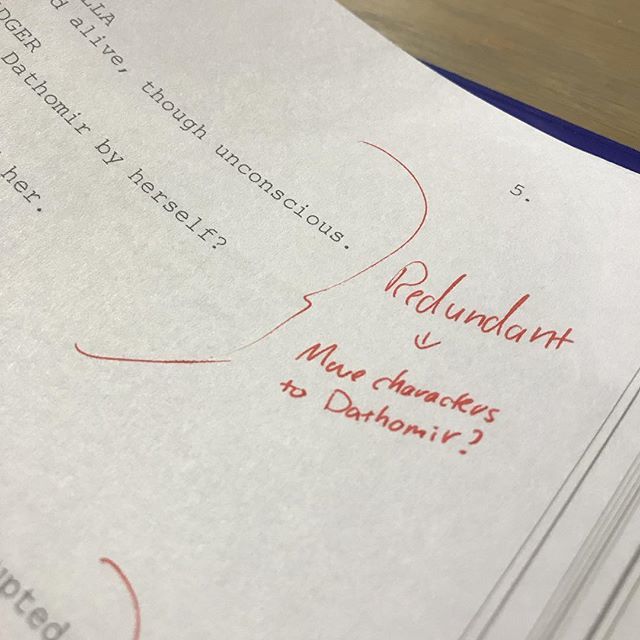 LLA
d alive, though unconscious.
DGER
Dathomir by herself?
her.
5.
Redundant
↓
Move characters
to Dathomir?
upted